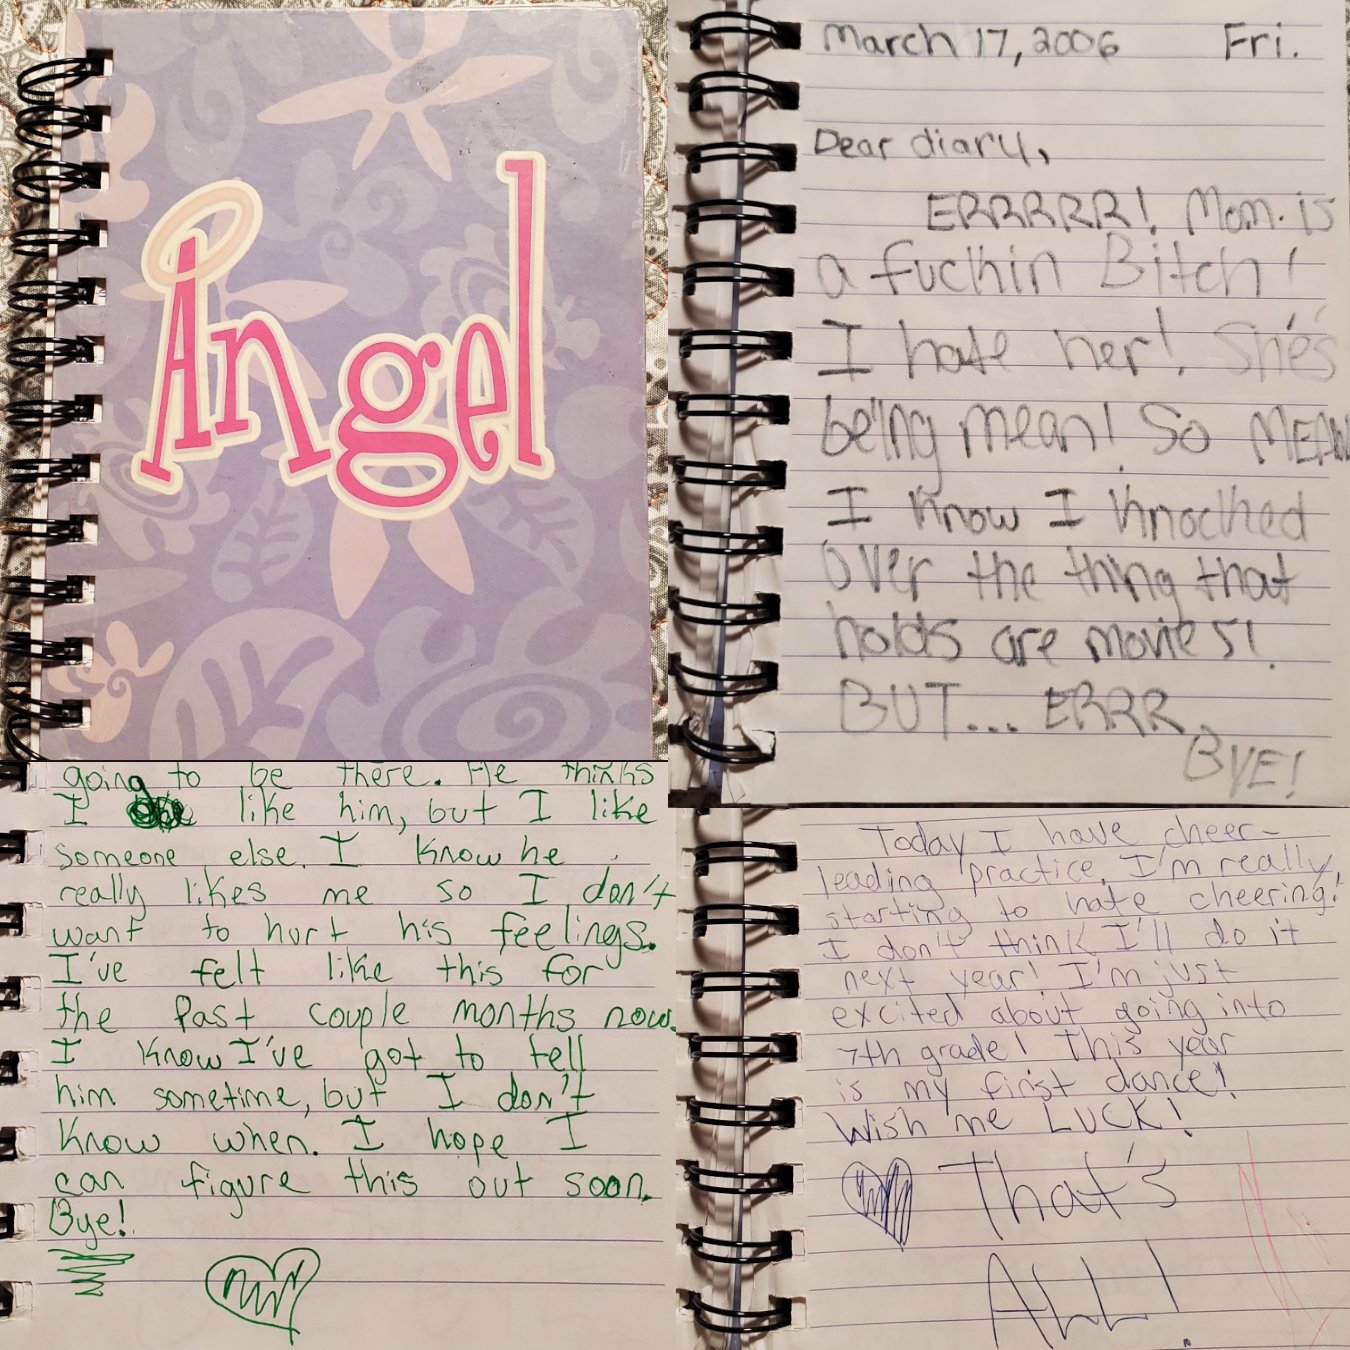 Angel
March 17, 2006 Fri.
Dear diary,
ERRRRR! Mom is
a fuckin Bitch!
I hate her! She's
being mean! So MEAN
I know I knocked
over the thing that
holds are movies!
BUT... ERRR.
BYE!
going to be there. He thinks
I like him, but I like
someone else. I know he
really likes me so I don't
want to hurt his feelings.
I've felt like this for
the past couple months now.
I know I've got to tell
him sometime, but I don't
know when. I hope I
can figure this out soon.
Bye!
Today I have cheer-
leading practice. I'm really,
starting to hate cheering!
I don't think I'll do it
next year! I'm just
excited about going into
7th grade! This year
is my first dance!
Wish me LUCK!
That's
ALL!